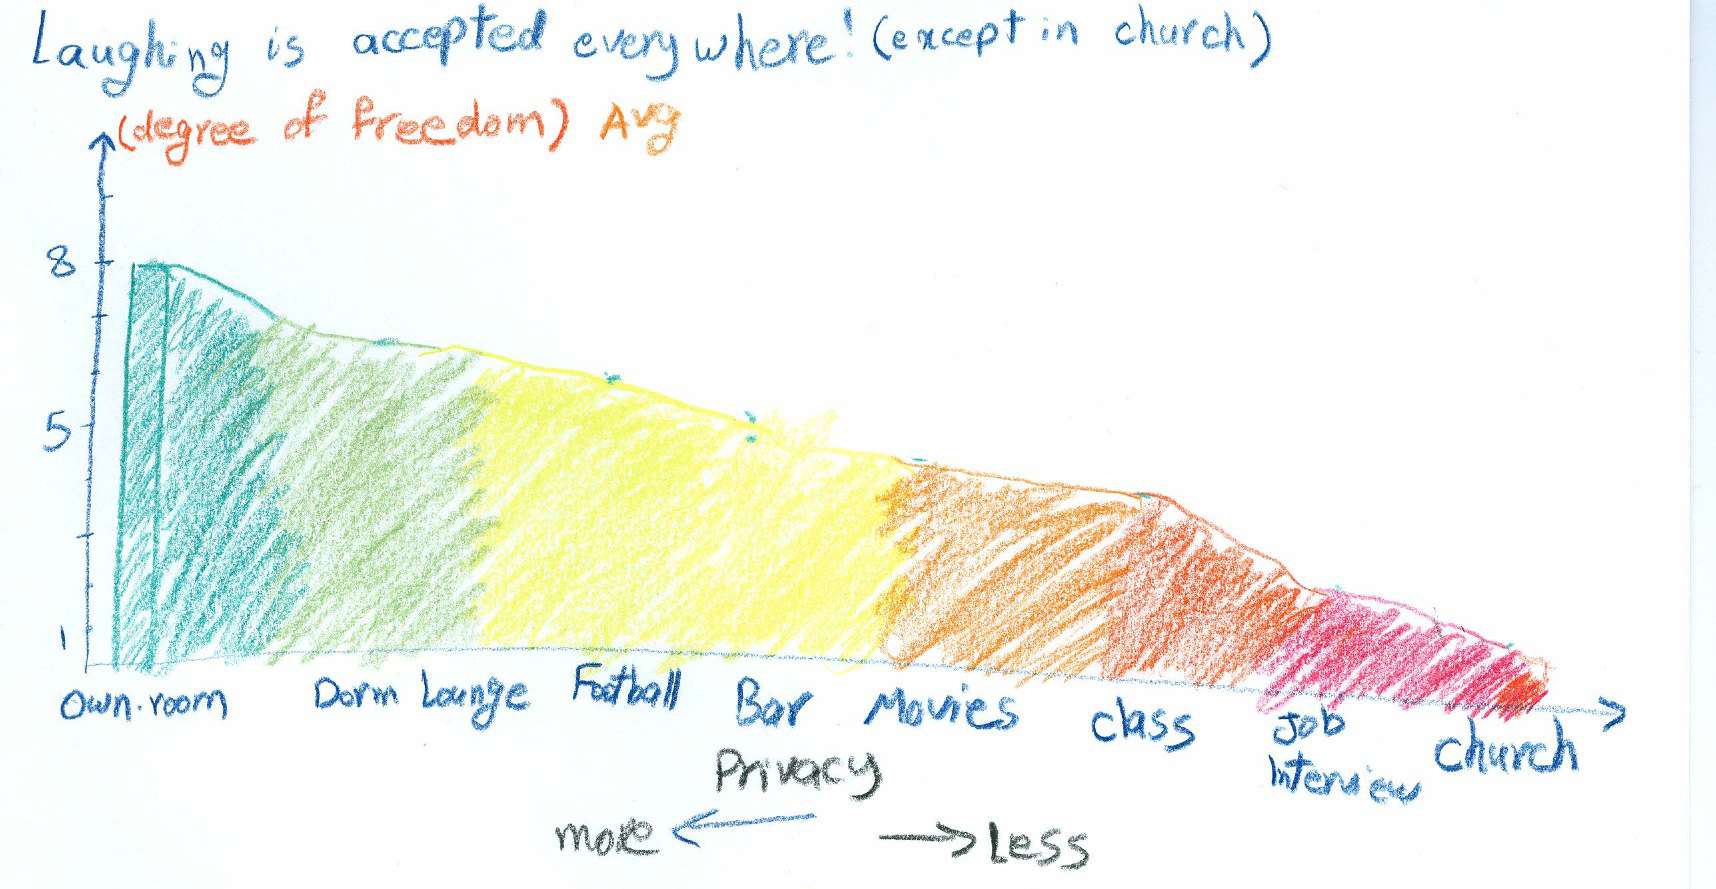 Laughing is accepted everywhere! (except in church)
(degree of freedom) Avg
8
5
1
Own.room Dorm Lounge Football Bar Movies class Job Interview church
Privacy
more Less